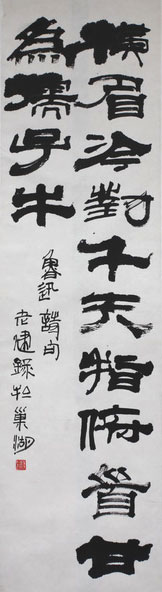 橫眉冷對千夫指俯首甘
為孺子牛
魯迅詩句
老錄於巢湖